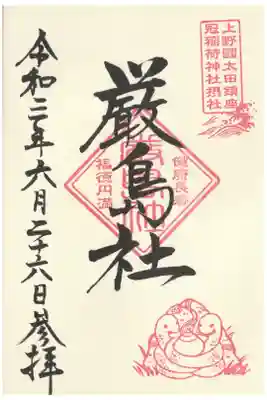 上野國太田鎮座
冠稲荷神社摂社
厳島社
健康長寿
厳島神社
福徳円満
令和二年六月二十六日参拝